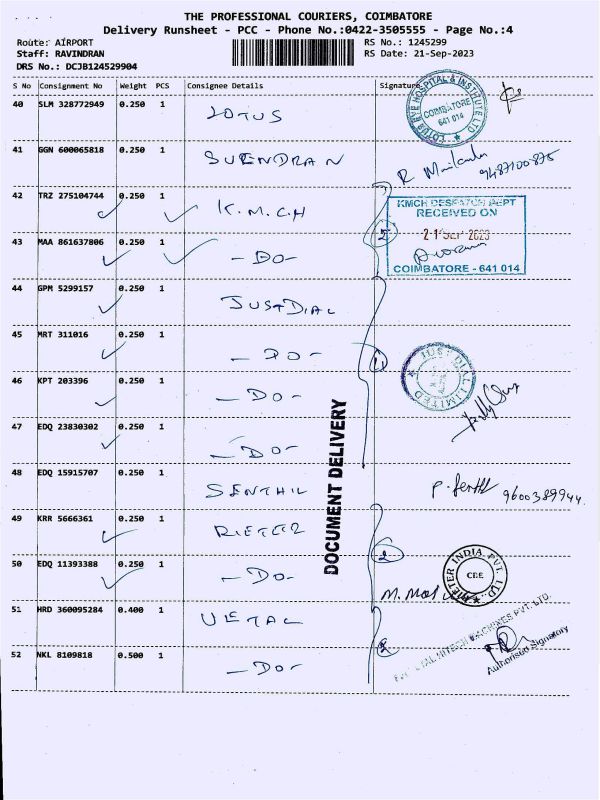 THE PROFESSIONAL COURIERS, COIMBATORE
Delivery Runsheet - PCC - Phone No.:0422-3505555 - Page No.:4
Route: AIRPORT RS No.: 1245299
Staff: RAVINDRAN RS Date: 21-Sep-2023
DRS No.: DCJB124529904
S No Consignment No Weight PCS Consignee Details Signature
40 SLM 328772949 0.250 1 LOTUS
LOTUS EYE HOSPITAL & INSTITUTE LTD
COIMBATORE
641 014
41 GGN 600065818 0.250 1 SURENDRAN
R 9487100875
42 TRZ 275104744 0.250 1 K.M.C.H
KMCH DESPATCH DEPT
RECEIVED ON
21 SEP 2023
COIMBATORE - 641 014
43 MAA 861637806 0.250 1 -DO-
2
44 GPM 5299157 0.250 1 JUSTDIAL
45 MRT 311016 0.250 1 -DO-
JUST DIAL LIMITED
46 KPT 203396 0.250 1 -DO-
47 EDQ 23830302 0.250 1 -DO-
DOCUMENT DELIVERY
48 EDQ 15915707 0.250 1 SENTHIL
9600389944.
49 KRR 5666361 0.250 1 RIETER
2
50 EDQ 11393388 0.250 1 -DO-
RIETER INDIA PVT. LTD.
CBE
51 HRD 360095284 0.400 1 VETAL
HITECH MACHINES PVT. LTD.
52 NKL 8109818 0.500 1 -DO-
2
Authorised Signatory